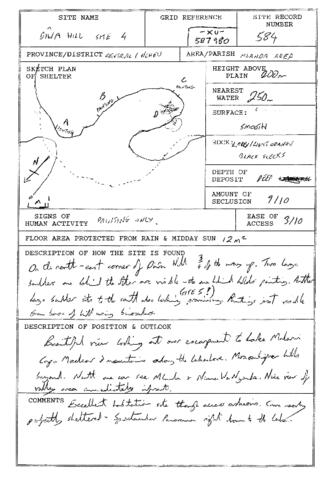 SITE NAME
GRID REFERENCE
SITE RECORD
NUMBER
HILL SITE 4
-XU-
587980
584
PROVINCE/DISTRICT CENTRAL/
AREA/PARISH AREA
SKETCH PLAN
OF SHELTER
A
B
C
N
HEIGHT ABOVE
PLAIN 200m
NEAREST
WATER 250m
SURFACE:
SMOOTH
ROCK:
BLACK FLECKS
DEPTH OF
DEPOSIT DEEP
AMOUNT OF
SECLUSION 9/10
SIGNS OF
HUMAN ACTIVITY PAINTING ONLY.
EASE OF
ACCESS 3/10
FLOOR AREA PROTECTED FROM RAIN & MIDDAY SUN 12m²
DESCRIPTION OF HOW THE SITE IS FOUND
On the north-east corner of Hill 3/4 of the way up. Two large
shelters one behind the other are visible - the one behind holds paintings. Another
(SITE 5!)
large shelter site to the south also looking promising. Paintings not visible
from base of hill using binoculars.
DESCRIPTION OF POSITION & OUTLOOK
Beautiful view looking out over escarpment to Lake Malawi
Cape Maclear & mountains along the lakeshore. Mozambique hills
beyond. North one can see & Nice view of
valley area immediately infront.
COMMENTS Excellent habitation site though access arduous. Cave nearly
perfectly sheltered - Spectacular Panorama right down to the lake.